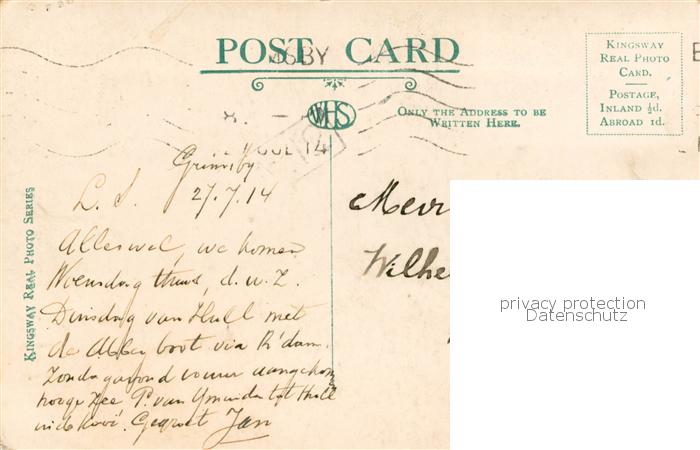 POST CARD
KINGSWAY
REAL PHOTO
CARD.
POSTAGE,
INLAND ½d.
ABROAD 1d.
WHS
ONLY THE ADDRESS TO BE
WRITTEN HERE.
KINGSWAY REAL PHOTO SERIES
JUL 14
Grimsby
27.7.14
L. S.
Alles wel, we komen
Woensdag thuis, d.w.z.
Dinsdag van Hull met
de Abbey boot via R'dam.
Zondagavond
hooge zee P. van Ymuiden tot Hull
Gegroet Jan
Mevr
Wilhe
privacy protection
Datenschutz